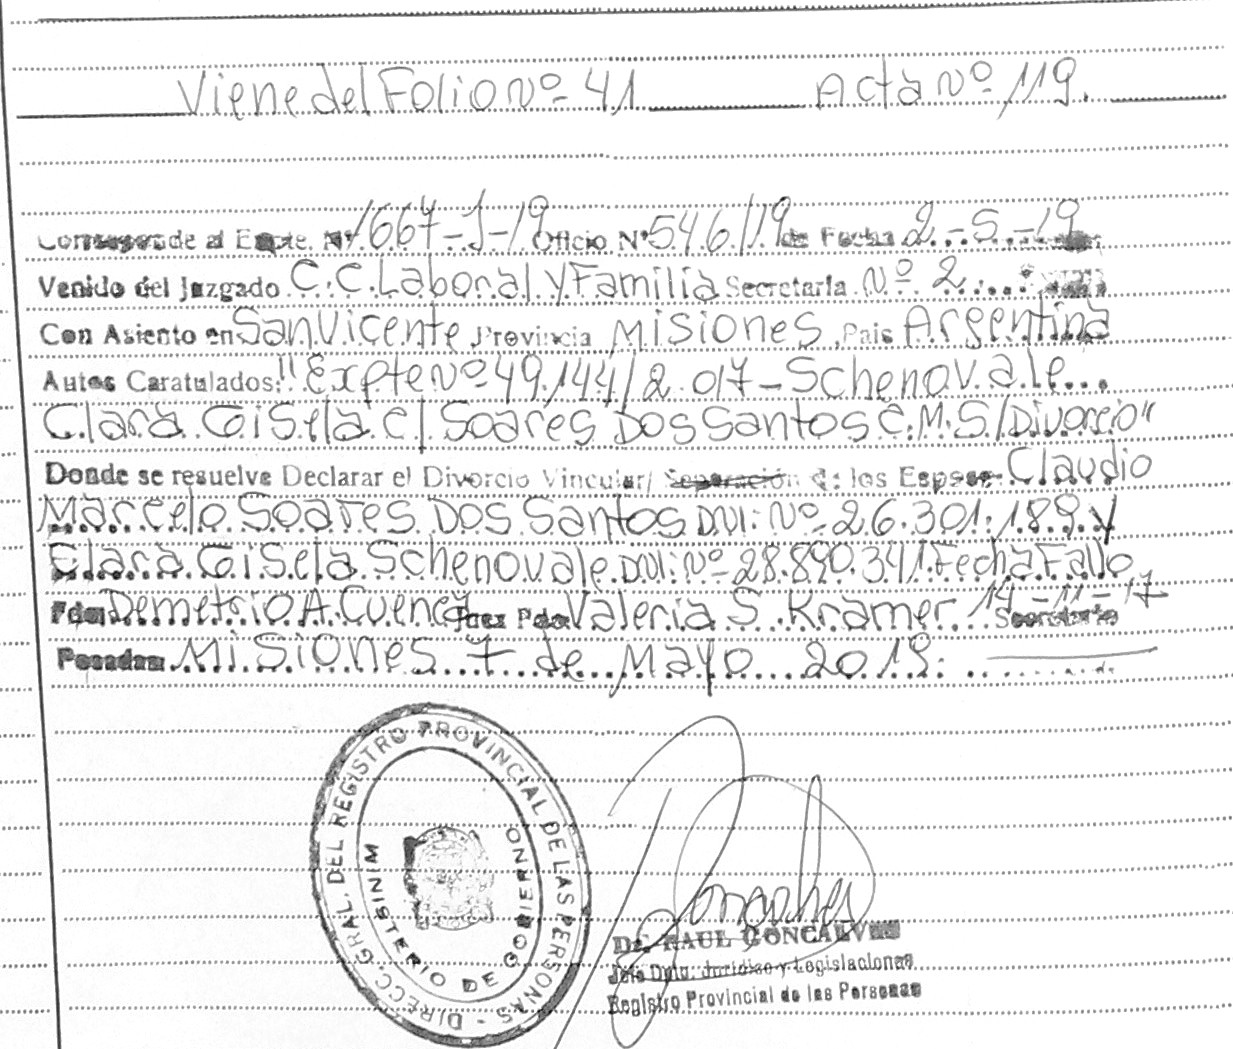 Viene del Folio nº 41 Acta nº 119.
Corresponde al Expte. Nº 1667-J-19 Oficio Nº 546/19 de Fecha 2-5-19
Venido del Juzgado C.C. Laboral y Familia Secretaria Nº 2
Con Asiento en San Vicente Provincia Misiones Pais Argentina
Autos Caratulados: "Expte Nº 49.144/2.017 - Schenovale
Clara Gisela c/ Soares Dos Santos C.M. S/Divorcio"
Donde se resuelve Declarar el Divorcio Vincular/ Separación de los Esposos Claudio
Marcelo Soares Dos Santos DNI: Nº 26.301.189 y
Clara Gisela Schenovale DNI: Nº 28.890.341. Fecha Fallo
14-11-17
Fdo. Demetrio A. Cuenca Juez Fdo. Valeria S. Kramer Secretario
Posadas Misiones 7 de Mayo 2019.
DIRECC. GRAL. DEL REGISTRO PROVINCIAL DE LAS PERSONAS -
MINISTERIO DE GOBIERNO
Dr. RAUL GONCALVES
Jefe Dpto. Juridico y Legislaciones
Registro Provincial de las Personas